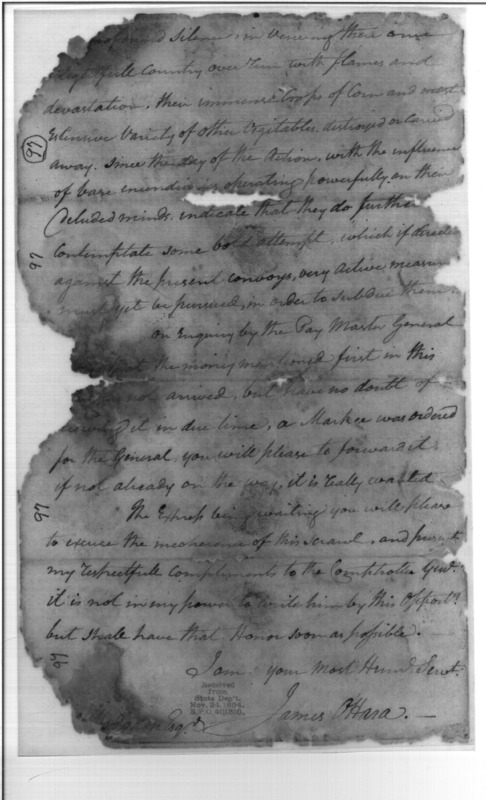 silence, in viewing there once
Country over run with flames and
devastation, their immense Crops of Corn and most
Extensive Variety of other Vegitables, destroyed or carried
away. Since the day of the Action, with the influence
of base incendiaries operating powerfully on their
deluded minds, indicate that they do further
Contemplate some bold attempt, which if directed
against the present convoys, very active measures
must yet be pursued, in order to subdue them
on Enquiry by the Pay Master General
that the money mentioned first in this
not arrived, but have no doubt of
it in due time, a Markee was ordered
for the General, you will please to forward it
if not already on the way, it is really wanted
The Express being waiting you will please
to excuse the incoherence of this scrawl, and present
my respectfull Compliments to the Comptroller Genl.
it is not in my power to write him by this Opporty.
but shall have that Honor soon as possible. —
I am your most Humb. Servt.
James OHara. —
Esqr.
Received
from
State Dep't.
Nov. 24, 1894.
97
97
97
97